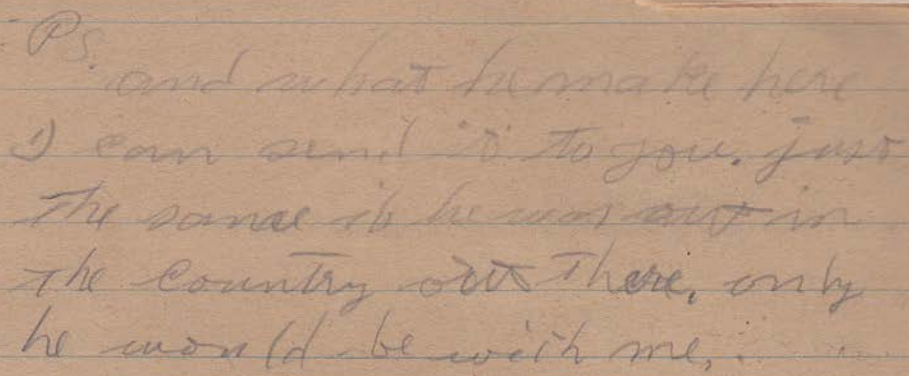 Ps.
and what he make here
I can send it to you. just
the same if he was out in
the country out there, only
he would be with me.